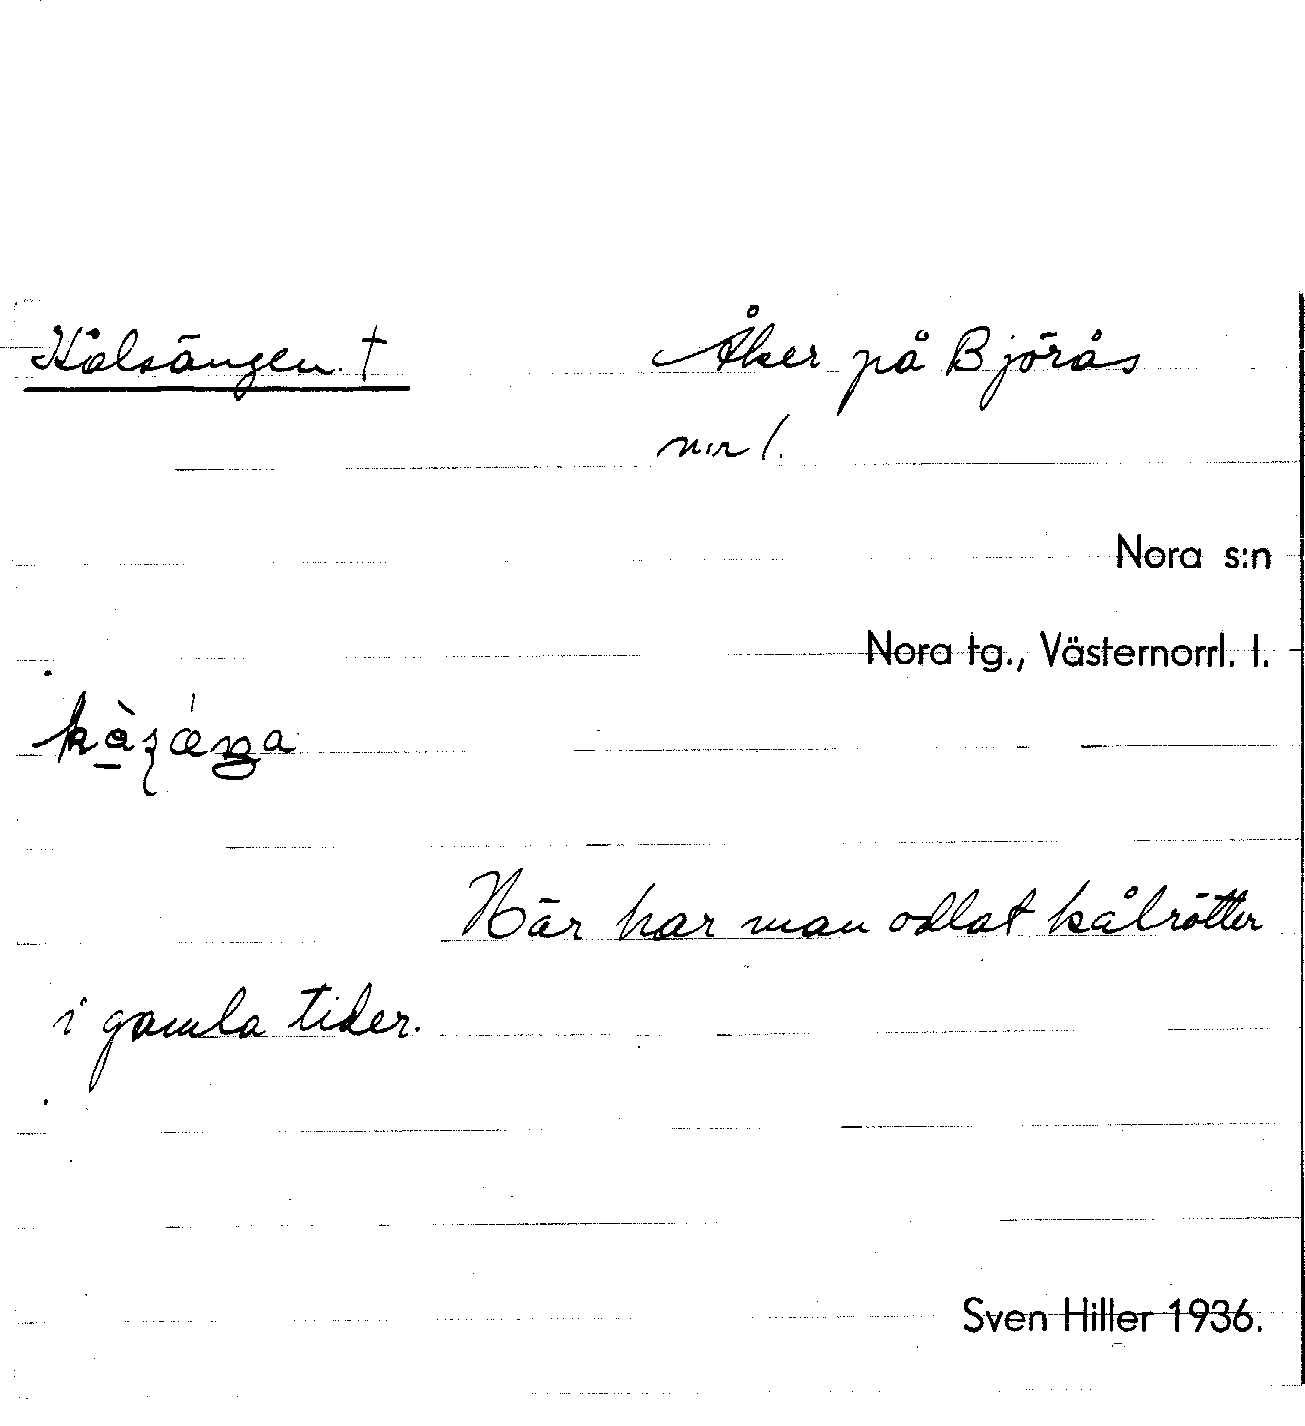 Kålsängen. † Åker på Björås
nr 1.
Nora s:n
Nora tg., Västernorrl. l.
Här har man odlat kålrötter
i gamla tider.
Sven Hiller 1936.